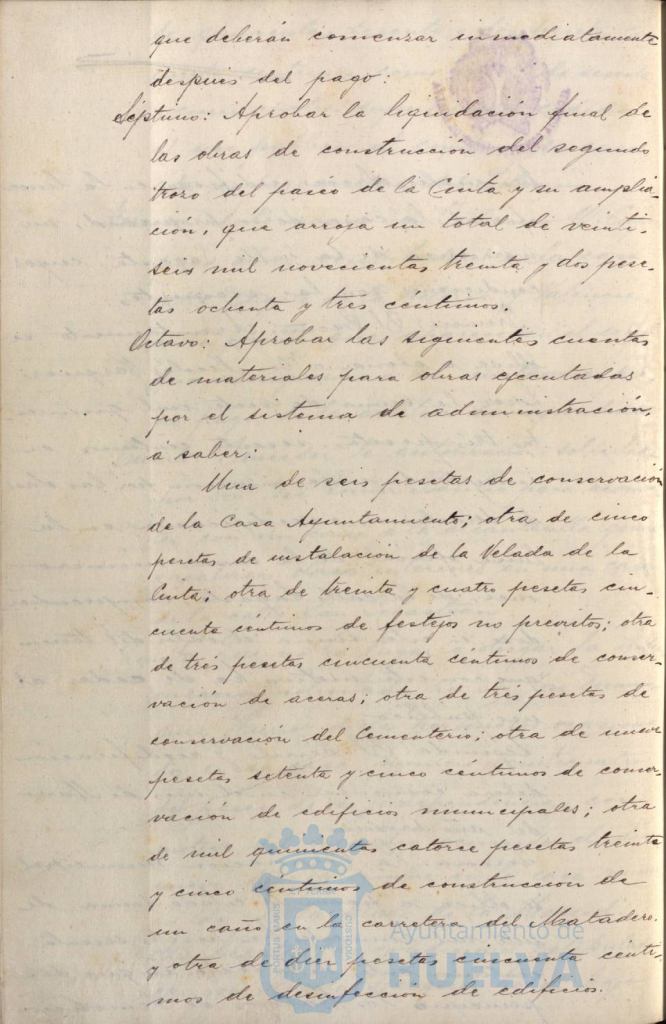 que deberán comenzar inmediatamente
despues del pago:
Séptimo: Aprobar la liquidación final de
las obras de construcción del segundo
trozo del paseo de la Cinta y su amplia-
ción, que arroja un total de veinti-
seis mil novecientas treinta y dos pese-
tas ochenta y tres céntimos.
Octavo: Aprobar las siguientes cuentas
de materiales para obras ejecutadas
por el sistema de administración,
á saber:
Una de seis pesetas de conservación
de la Casa Ayuntamiento; otra de cinco
pesetas de instalación de la Velada de la
Cinta; otra de treinta y cuatro pesetas cin-
cuenta céntimos de festejos no previstos; otra
de tres pesetas cincuenta céntimos de conser-
vación de aceras; otra de tres pesetas de
conservación del Cementerio; otra de nueve
pesetas setenta y cinco céntimos de conser-
vación de edificios municipales; otra
de mil quinientas catorce pesetas treinta
y cinco céntimos de construcción de
un caño en la carretera del Matadero,
y otra de diez pesetas cincuenta cénti-
mos de desinfección de edificios.
PORTUS MARIS
CUSTODIA
Ayuntamiento de
HUELVA